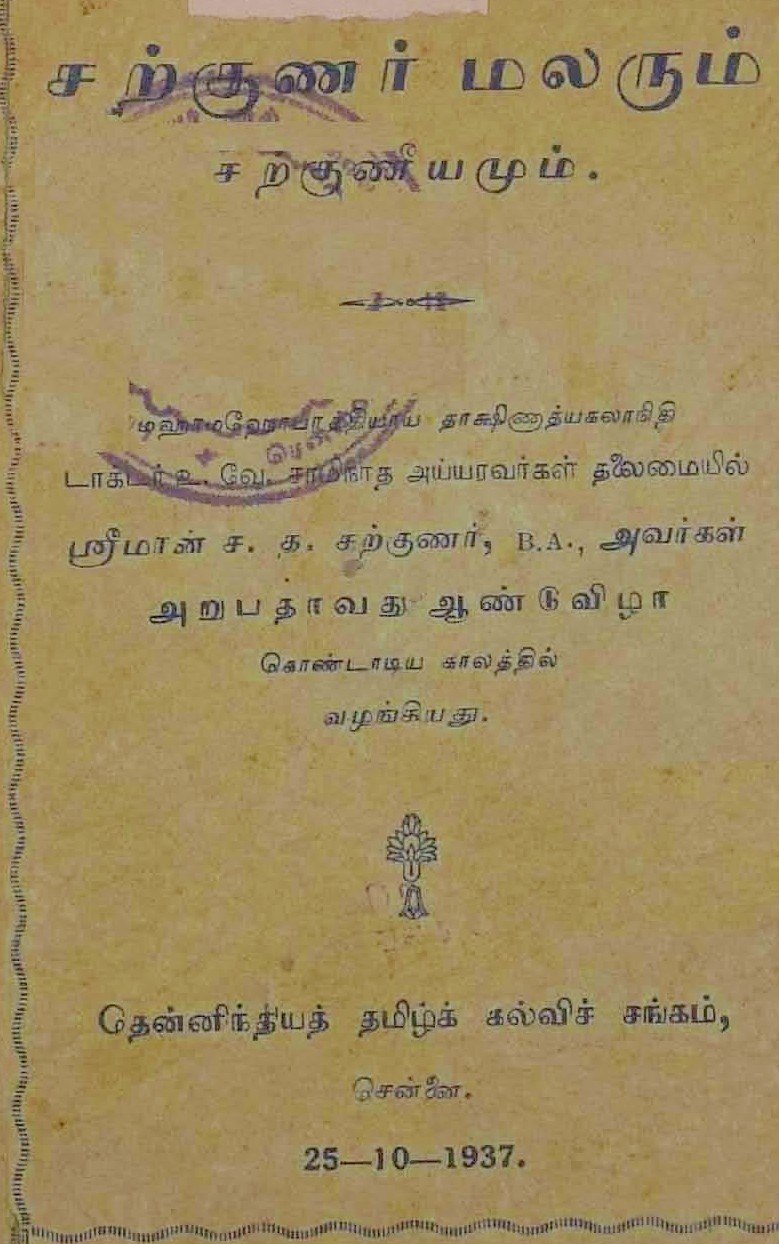 சற்குணர் மலரும்
சற்குணீயமும்.
மஹாமஹோபாத்தியாய தாக்ஷிணாத்யகலாநிதி
டாக்டர் உ. வே. சாமிநாத அய்யரவர்கள் தலைமையில்
ஸ்ரீமான் ச. த. சற்குணர், B.A., அவர்கள்
அறுபதாவது ஆண்டுவிழா
கொண்டாடிய காலத்தில்
வழங்கியது.
தென்னிந்தியத் தமிழ்க் கல்விச் சங்கம்,
சென்னை.
25—10—1937.